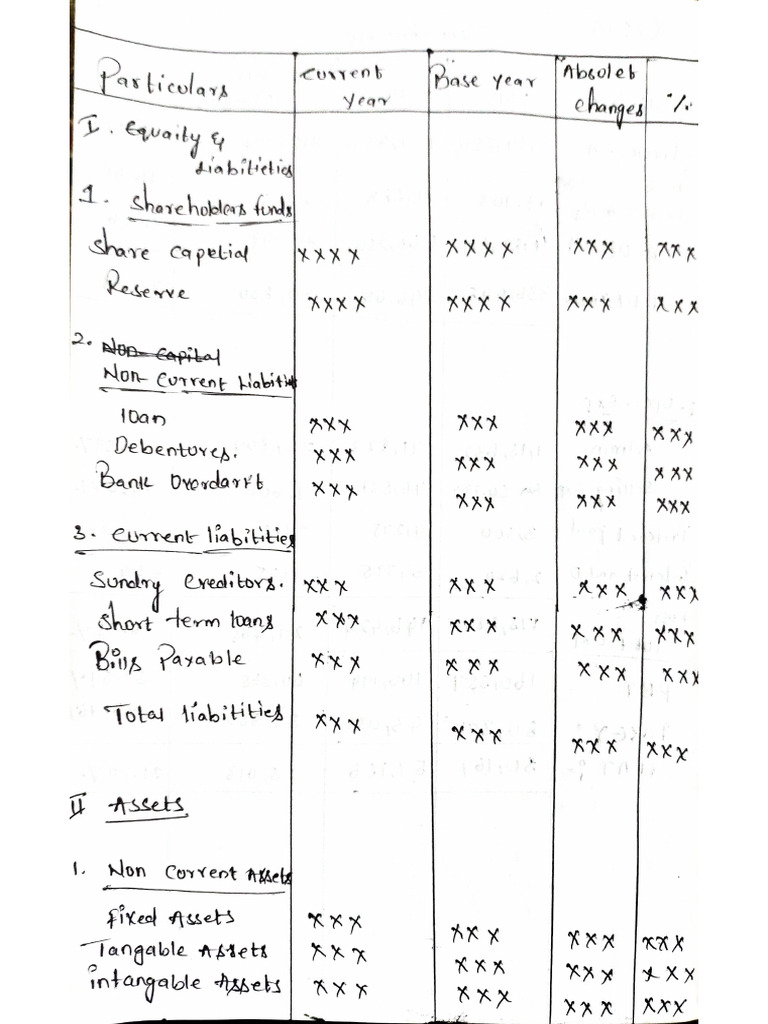 Particulars Current year Base year Absolet changes %
I. Equaity &
Liabitieties
1. Shareholders funds
Share Capetial xxxx xxxx xxx xxx
Reserve xxxx xxxx xxx xxx
2. Non Capital
Non Current Liabities
loan xxx xxx xxx xxx
Debentures. xxx xxx xxx xxx
Bank Overdarft xxx xxx xxx xxx
3. Current liabitities
Sundry Creditors. xxx xxx xxx xxx
Short term loans xxx xxx xxx xxx
Bills Payable xxx xxx xxx xxx
Total liabitities xxx xxx xxx xxx
II Assets
1. Non Current Assets
Fixed Assets xxx xxx xxx xxx
Tangable Assets xxx xxx xxx xxx
intangable Assets xxx xxx xxx xxx